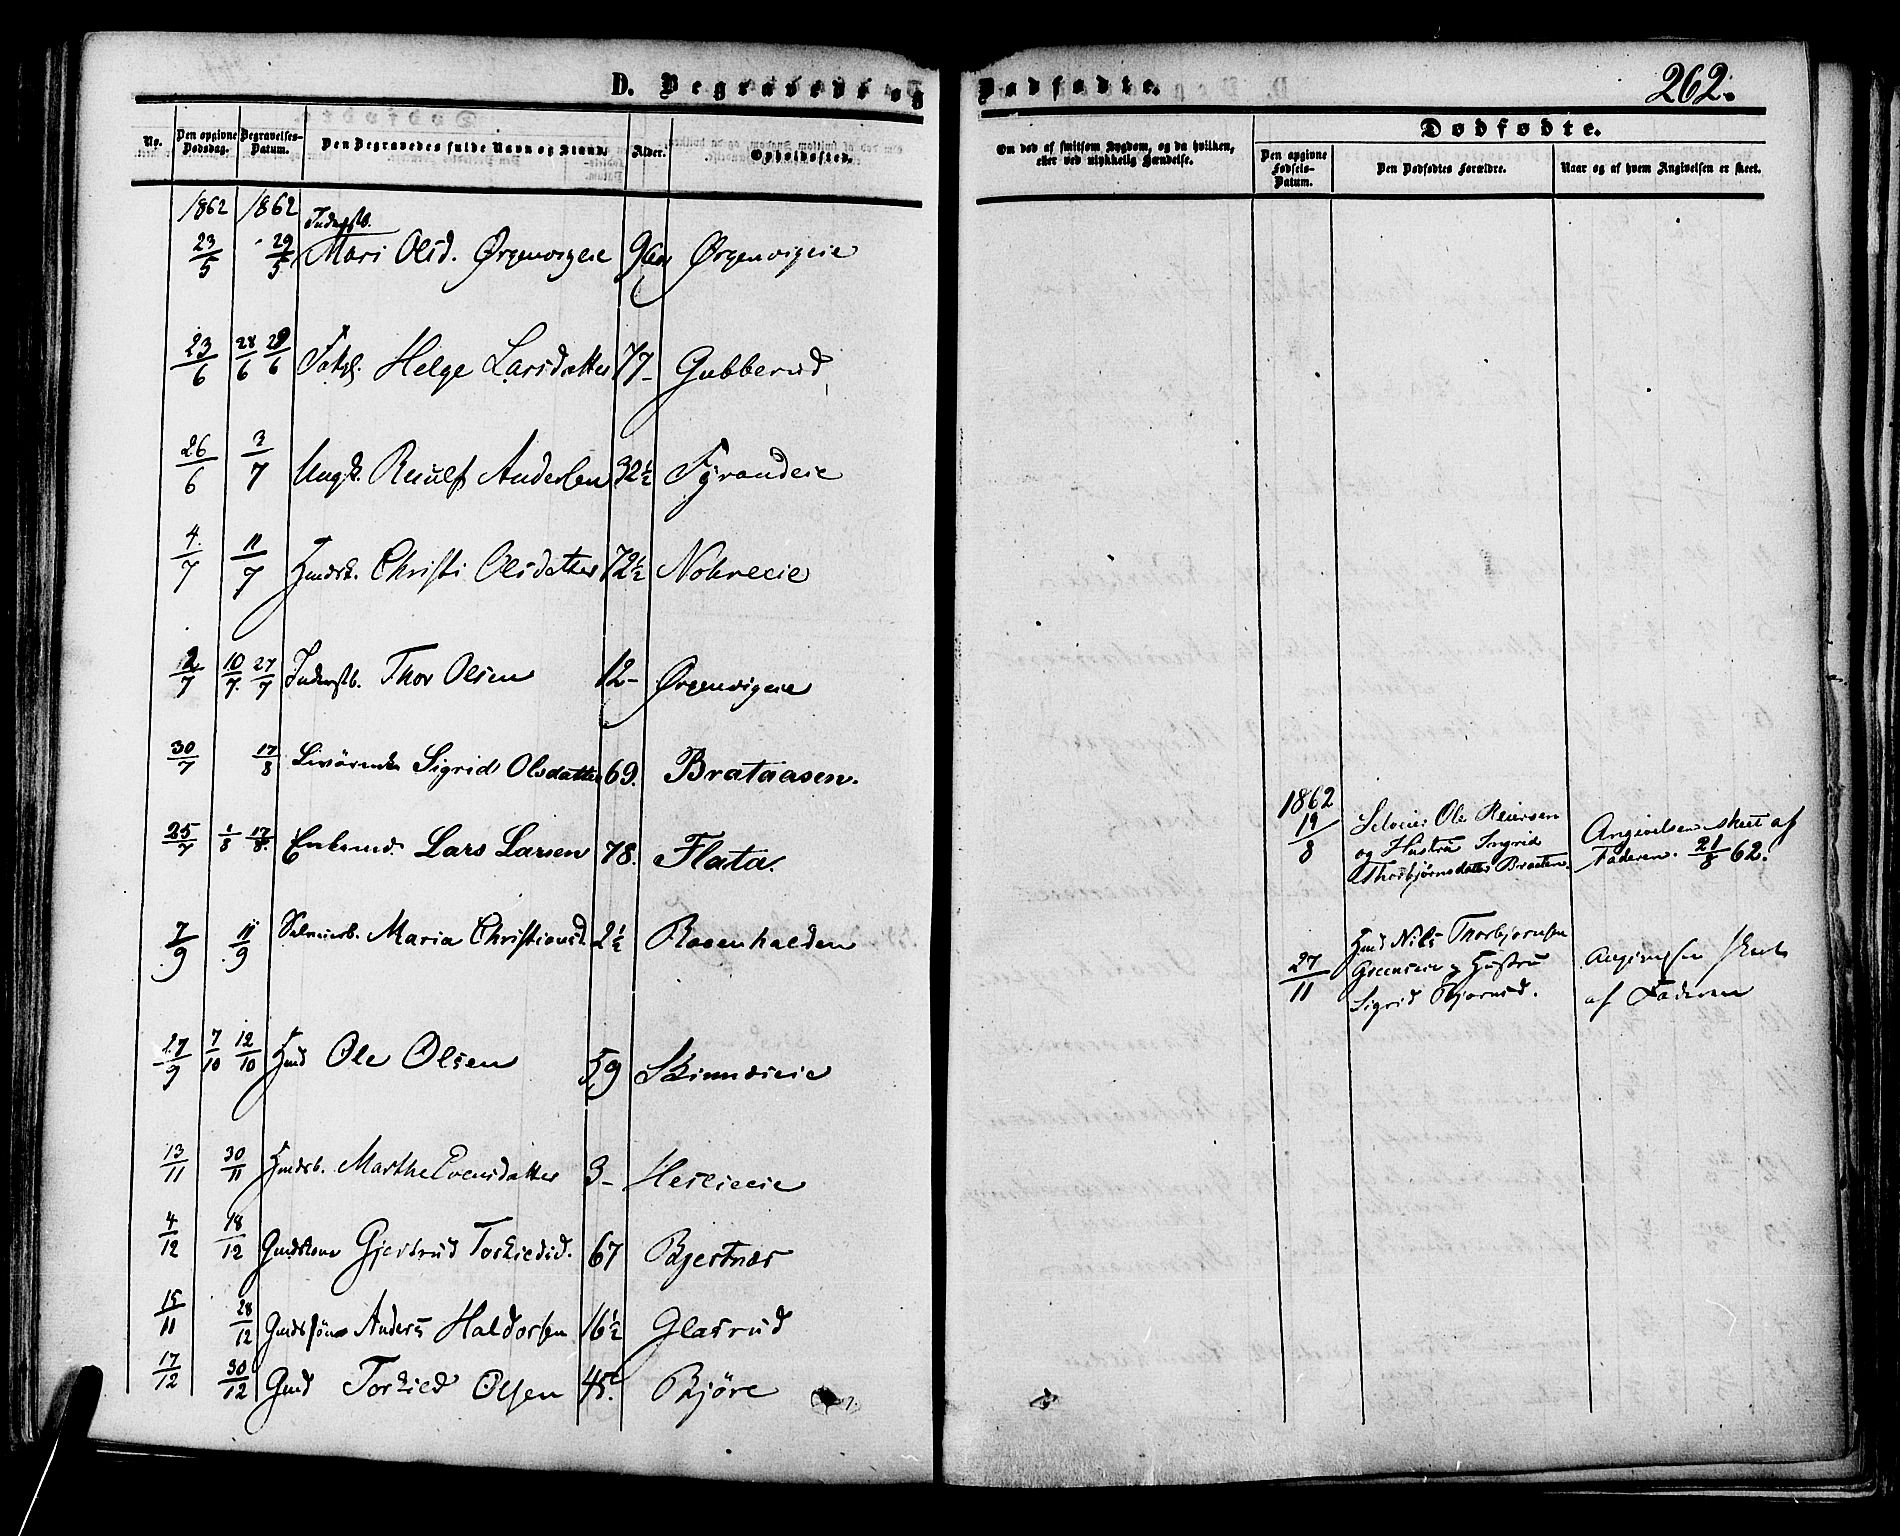 D. Begravede og Dødfødte.
262.
No. Den opgivne Dødsdag. Begravelses-Datum. Den Begravedes fulde Navn og Stand. Alder. Opholdssted.
Om død af smitsom Sygdom, og da hvilken, eller ved ulykkelig Hændelse.
Dødfødte.
Den opgivne Fødsels-Datum. Den Dødfødtes Forældre. Naar og af hvem Angivelsen er skeet.
1862 1862
23/5 29/5 Inderstb. Mari Olsd. Ørgenvigeie Ørgenvigeie
23/6 28/6 29/6 Helge Larsdatter 77- Gubberud
26/6 3/7 Ungk. Andersen 32½
4/7 11/7 Christi Olsdatter 72½
12/7 10/7 27/7 Inderstb. Thor Olsen 12- Ørgenvigeie
30/7 17/8 Sigrid Olsdatter 69. Brataasen.
25/7 1/8 17/8 Enkemd. Lars Larsen 78. Flata.
7/9 11/9 Maria Christiansd. 2½
27/9 7/10 12/10 Ole Olsen 59
13/11 30/11 Marthe Evensdatter 3-
4/12 18/12 Gmdskone Gjertrud 67 Bjertnæs
15/11 28/12 Gmdssøn Anders Haldorsen 16½ Glasrud
17/12 30/12 Gmd Torkied Olsen 45. Bjøre
1862
19/8 Selveier Ole Reiersen
og Hustru Ingrid
Thorbjørnsdatter Braaten.
Angivelsen skeet af
Faderen. 21/8 62.
27/11 Nils Thorbjørnsen
Hustru
Sigrid
Angivelsen skeet
af Faderen